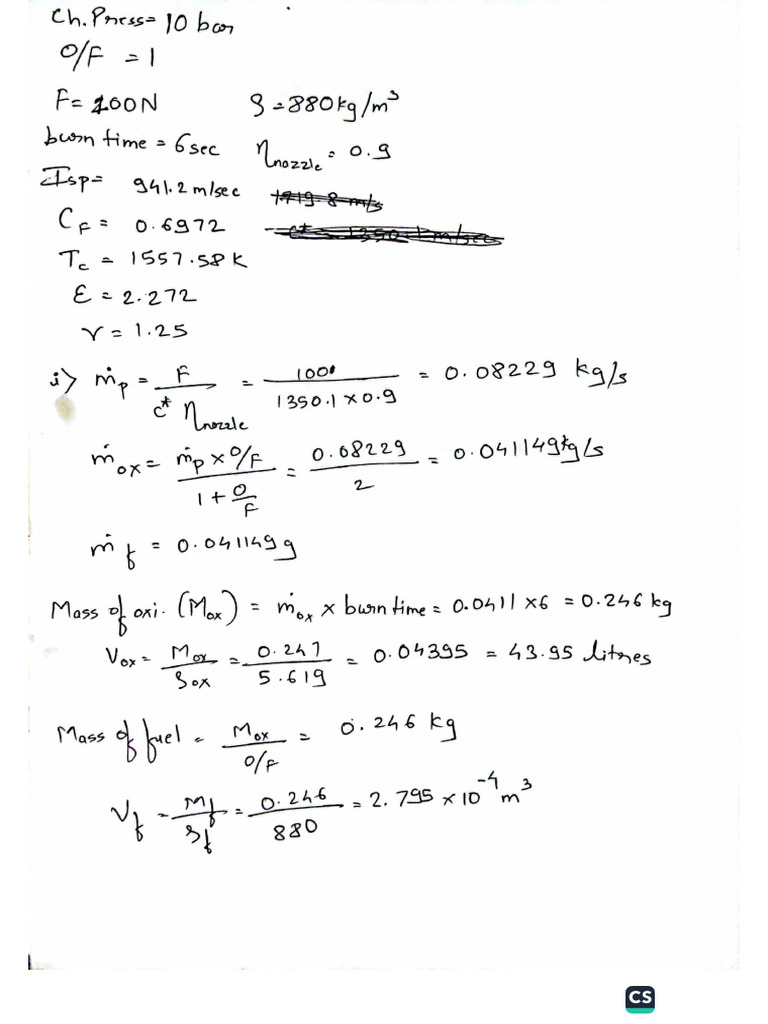 Ch. Press= 10 bar
O/F = 1
F= 100N ρ=880kg/m³
burn time = 6sec η nozzle = 0.9
Isp= 941.2m/sec 1719.8 m/s
C_F = 0.6972
T_c = 1557.58K
ε = 2.272
γ = 1.25
i) ṁ_p = F / (c* η nozzle) = 100 / (1350.1 × 0.9) = 0.08229 kg/s
ṁ_ox = (ṁ_p × O/F) / (1 + O/F) = 0.08229 / 2 = 0.041149kg/s
ṁ_f = 0.041149 g
Mass of oxi. (M_ox) = ṁ_ox × burn time = 0.0411 ×6 = 0.246 kg
V_ox = M_ox / ρ_ox = 0.247 / 5.619 = 0.04395 = 43.95 litres
Mass of fuel = M_ox / O/F = 0.246 kg
V_f = M_f / ρ_f = 0.246 / 880 = 2.795 × 10⁻⁴ m³
CS